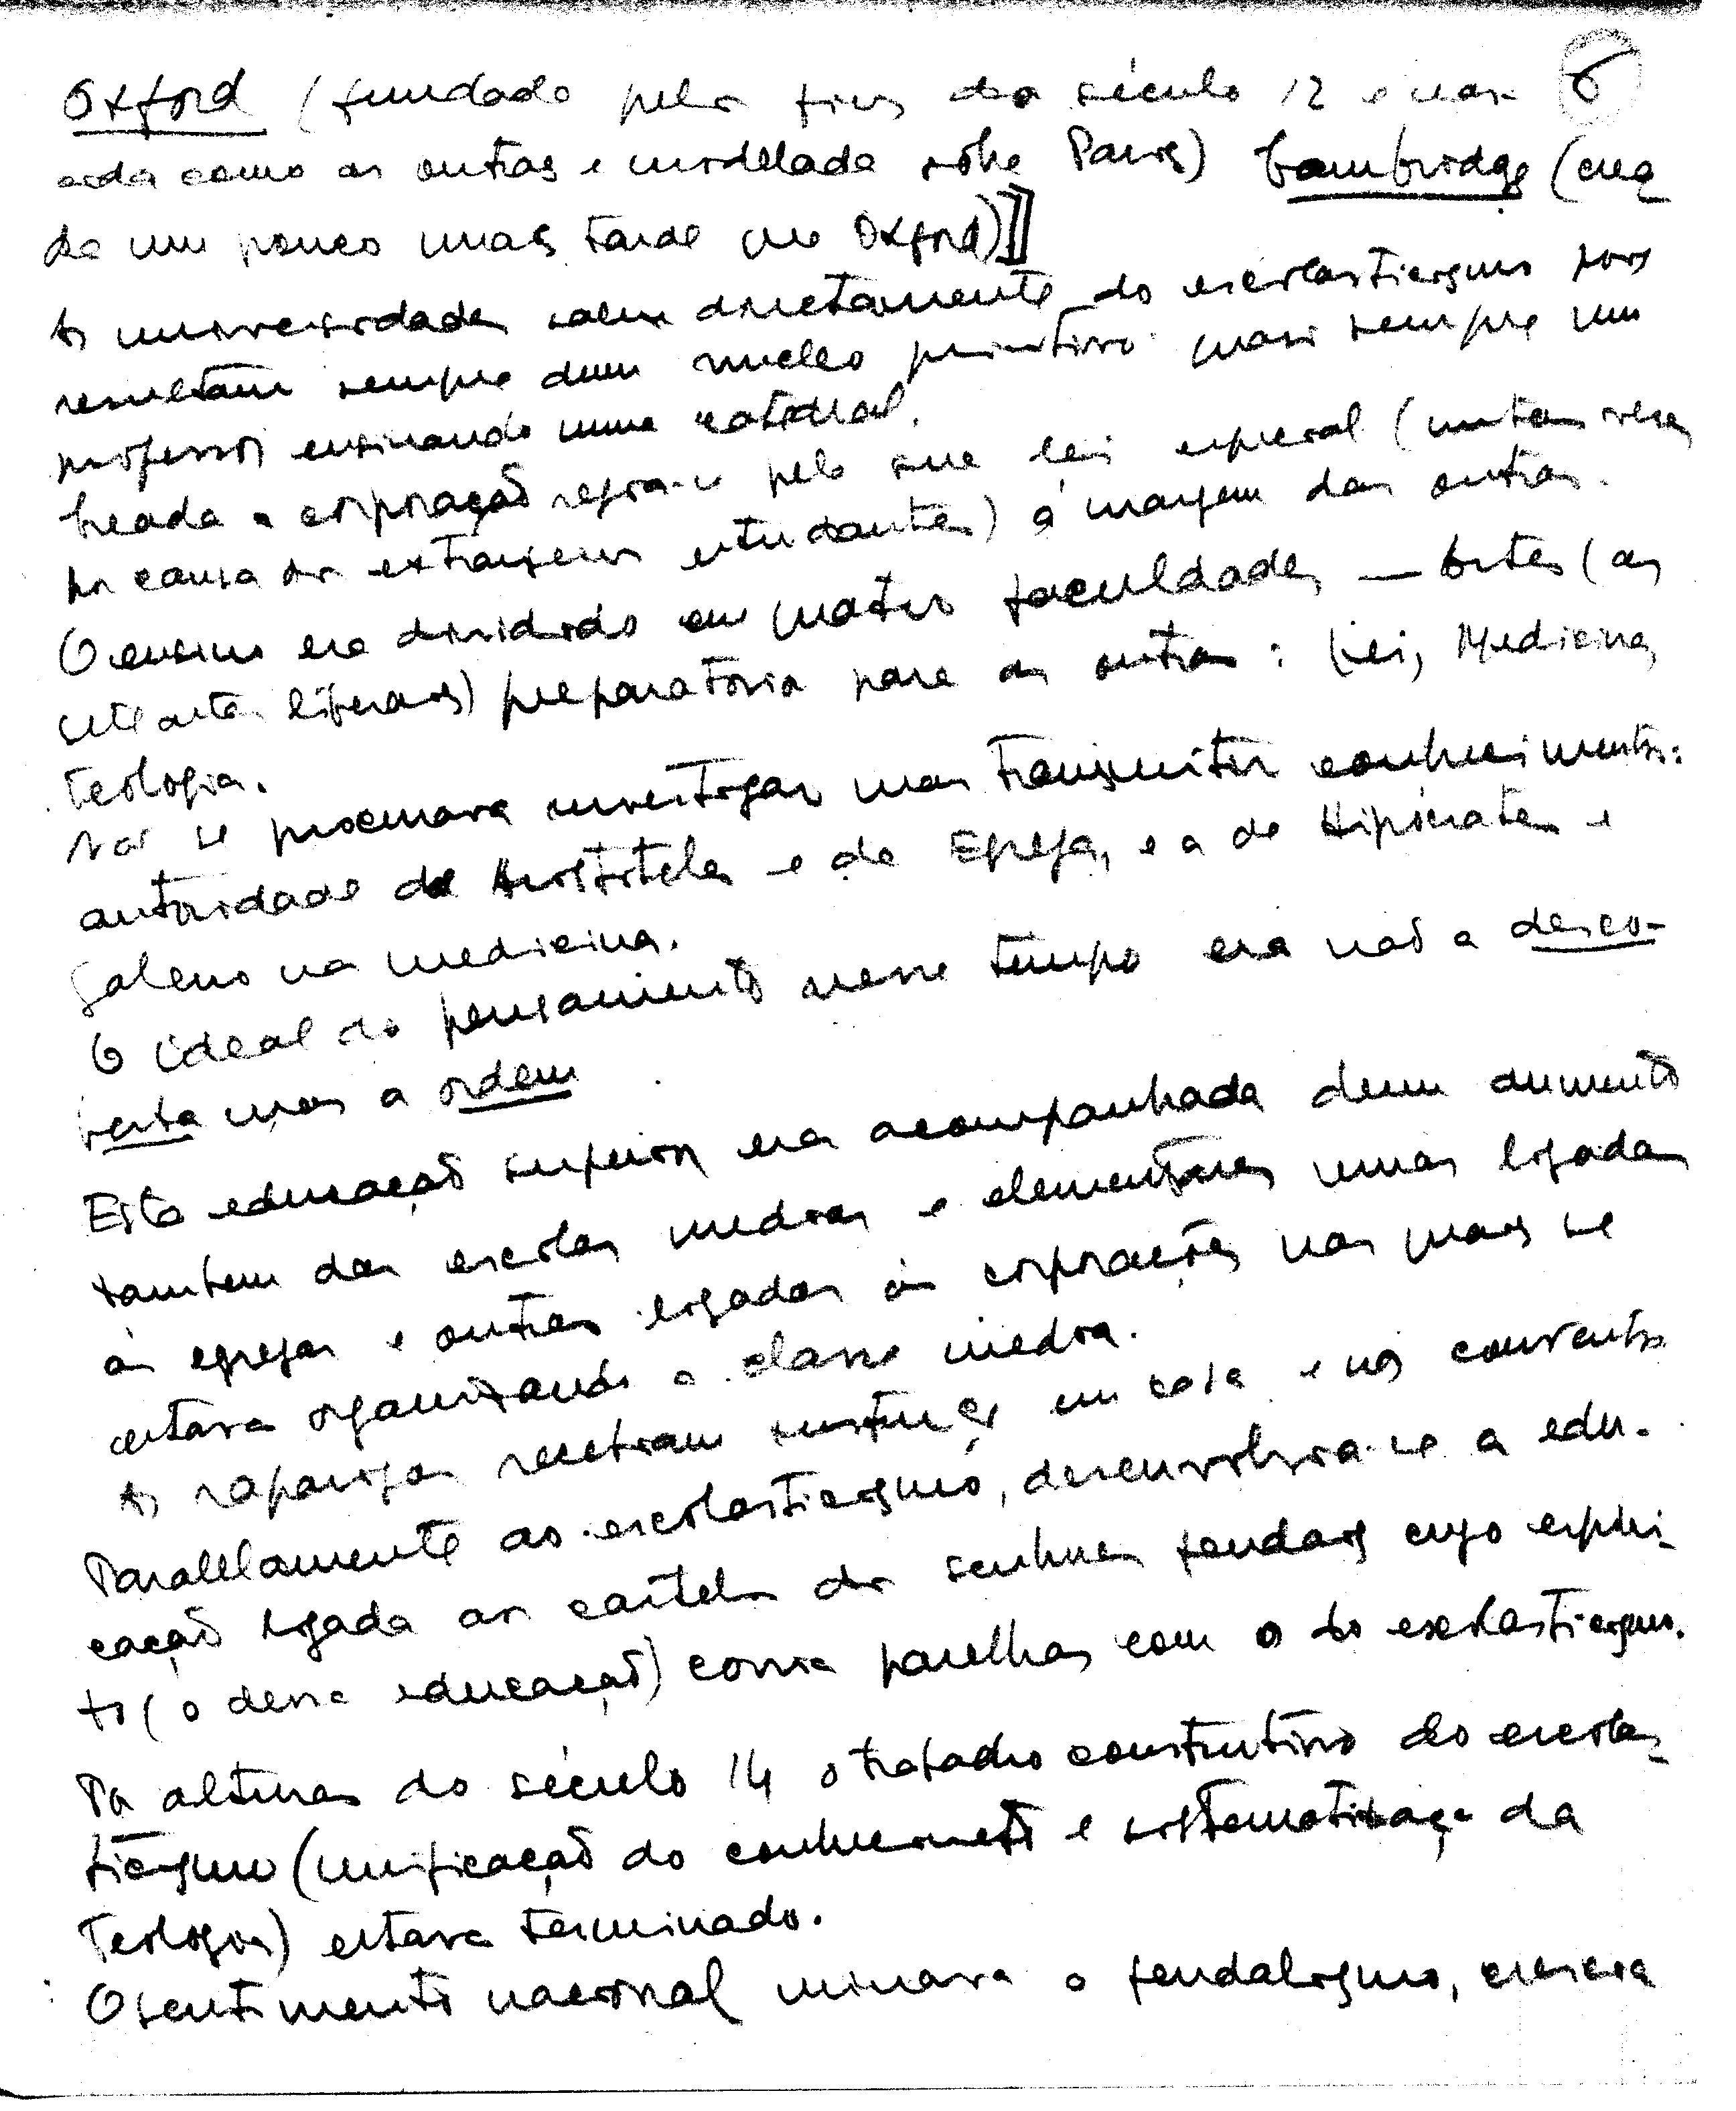 Oxford (fundada pelos fins do século 12 e nas- 6
cida como as outras e modelada sobre Paris) Cambridge (cria
da um pouco mais tarde que Oxford)]]
As universidades saem directamente do escolasticismo pois
resultam sempre dum nucleo primitivo quasi sempre um
professor ensinando numa catedral.
Creada a corporação regia-se pela sua lei especial (muitas vezes
por causa dos extrangeiros estudantes) á margem das outras.
O ensino era dividido em quatro faculdades — Artes (as
sete artes liberais) preparatoria para as outras: Lei, Medicina,
teologia.
Não se procurava investigar mas transmitir conhecimentos:
autoridade de Aristoteles e da Egreja, e a de Hipócrates e
Galeno na medicina.
O ideal do pensamento nesse tempo era não a desco-
berta mas a ordem
Esta educação superior era acompanhada dum aumento
tambem das escolas medias e elementares umas ligadas
ás egrejas e outras ligadas ás corporações nas quais se
estava organizando a classe media.
As raparigas recebiam instrução em casa e nos conventos
Paralelamente ao escolasticismo, desenvolvia-se a edu-
cação ligada aos castelos dos senhores feudais cujo espiri-
to (o dessa educação) corria parelhas com o do escolasticismo.
Por alturas do século 14 o trabalho construtivo do escolas-
ticismo (unificação do conhecimento e sistematização da
teologia) estava terminado.
O sentimento nacional minava o feudalismo, crescia